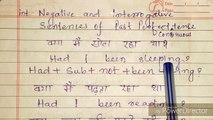 int Negative and interrogative
Sentences of Past Perfect tense
Continuous
क्या मैं सोता रहा था?
Had I been sleeping?
Had + Sub + not + been + ing?
क्या मैं पढ़ता रहा था
Had I been reading?